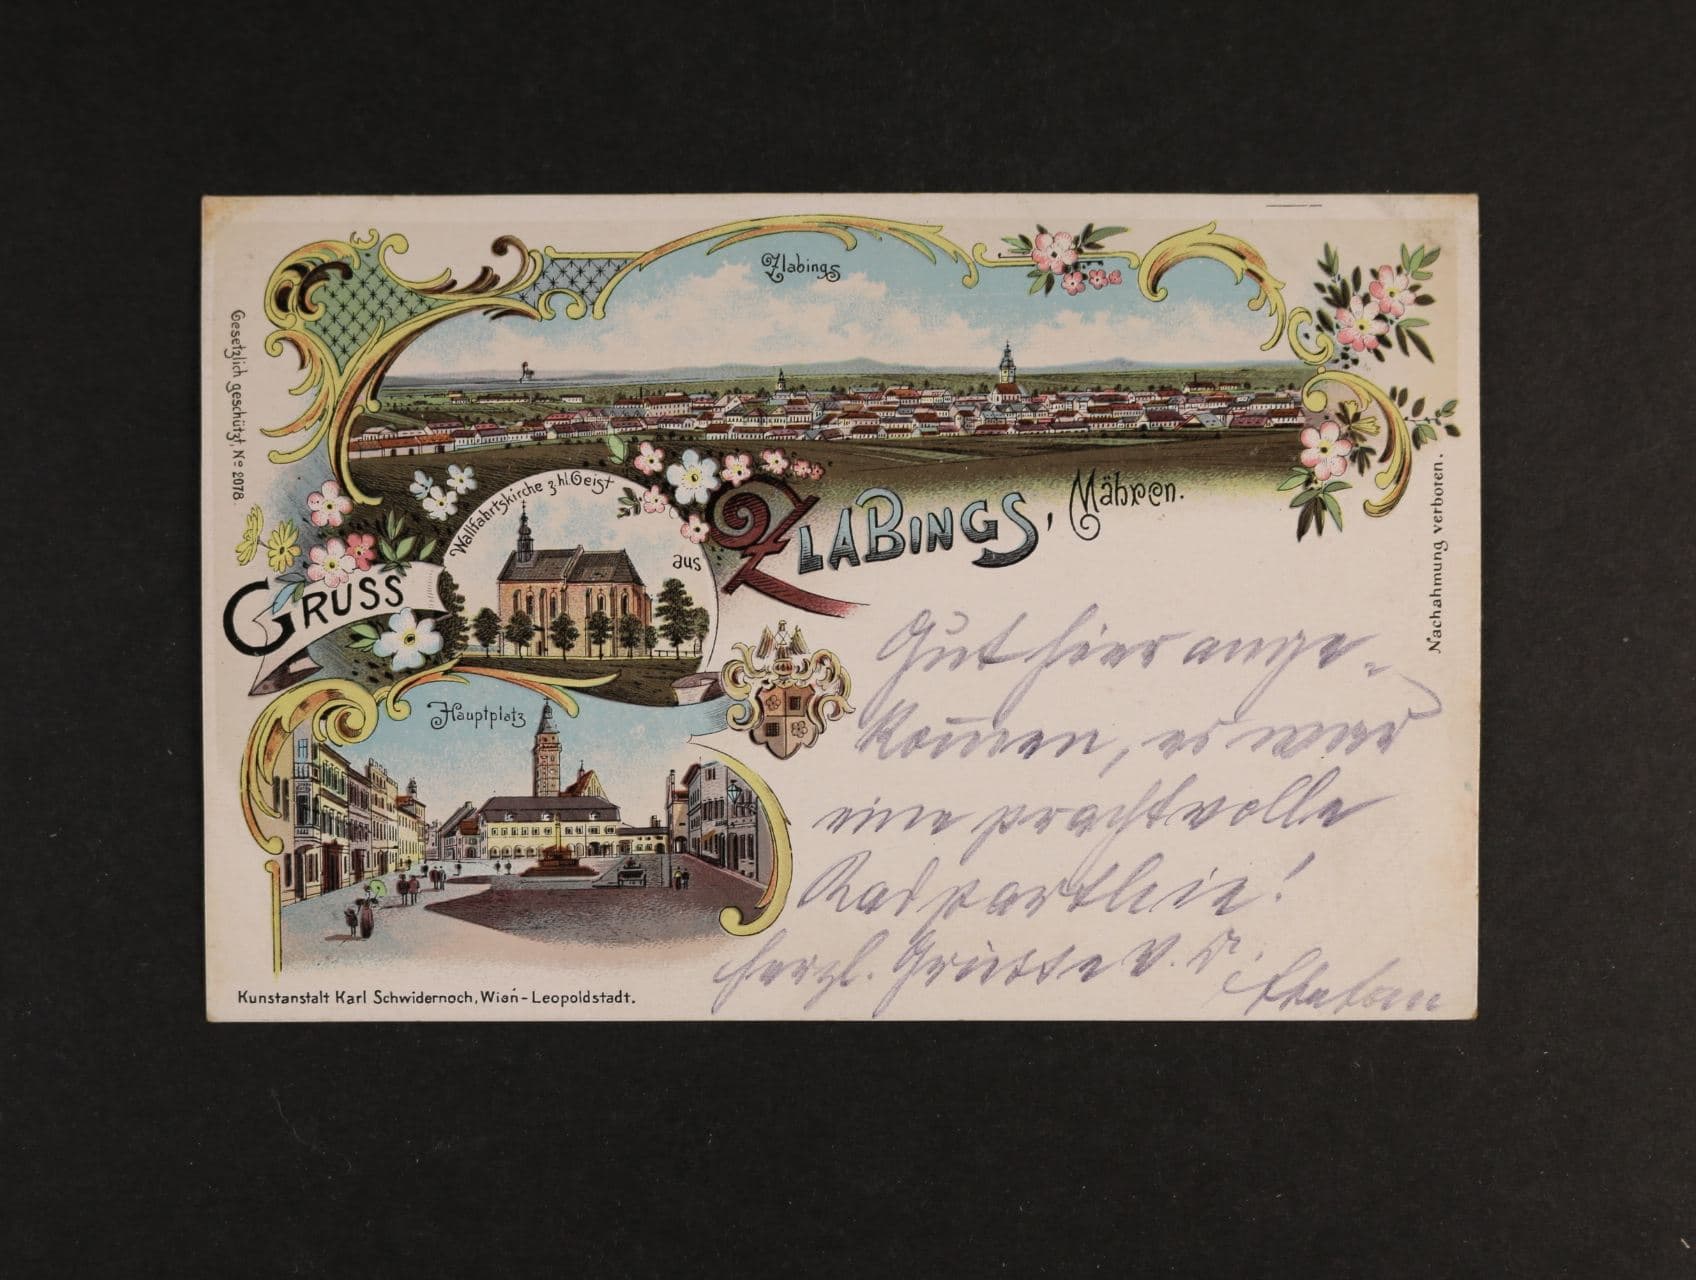 Zlabings
Gesetzlich geschützt, No 2078.
Wallfahrtskirche z. hl. Geist
GRUSS
aus
ZLABINGS, Mähren.
Nachahmung verboren.
Hauptplatz
Gut hier ange-
kom̄en, es war
eine prachtvolle
Radparthie!
Herzl. Grüsse v. D.
Kunstanstalt Karl Schwidernoch, Wien-Leopoldstadt.